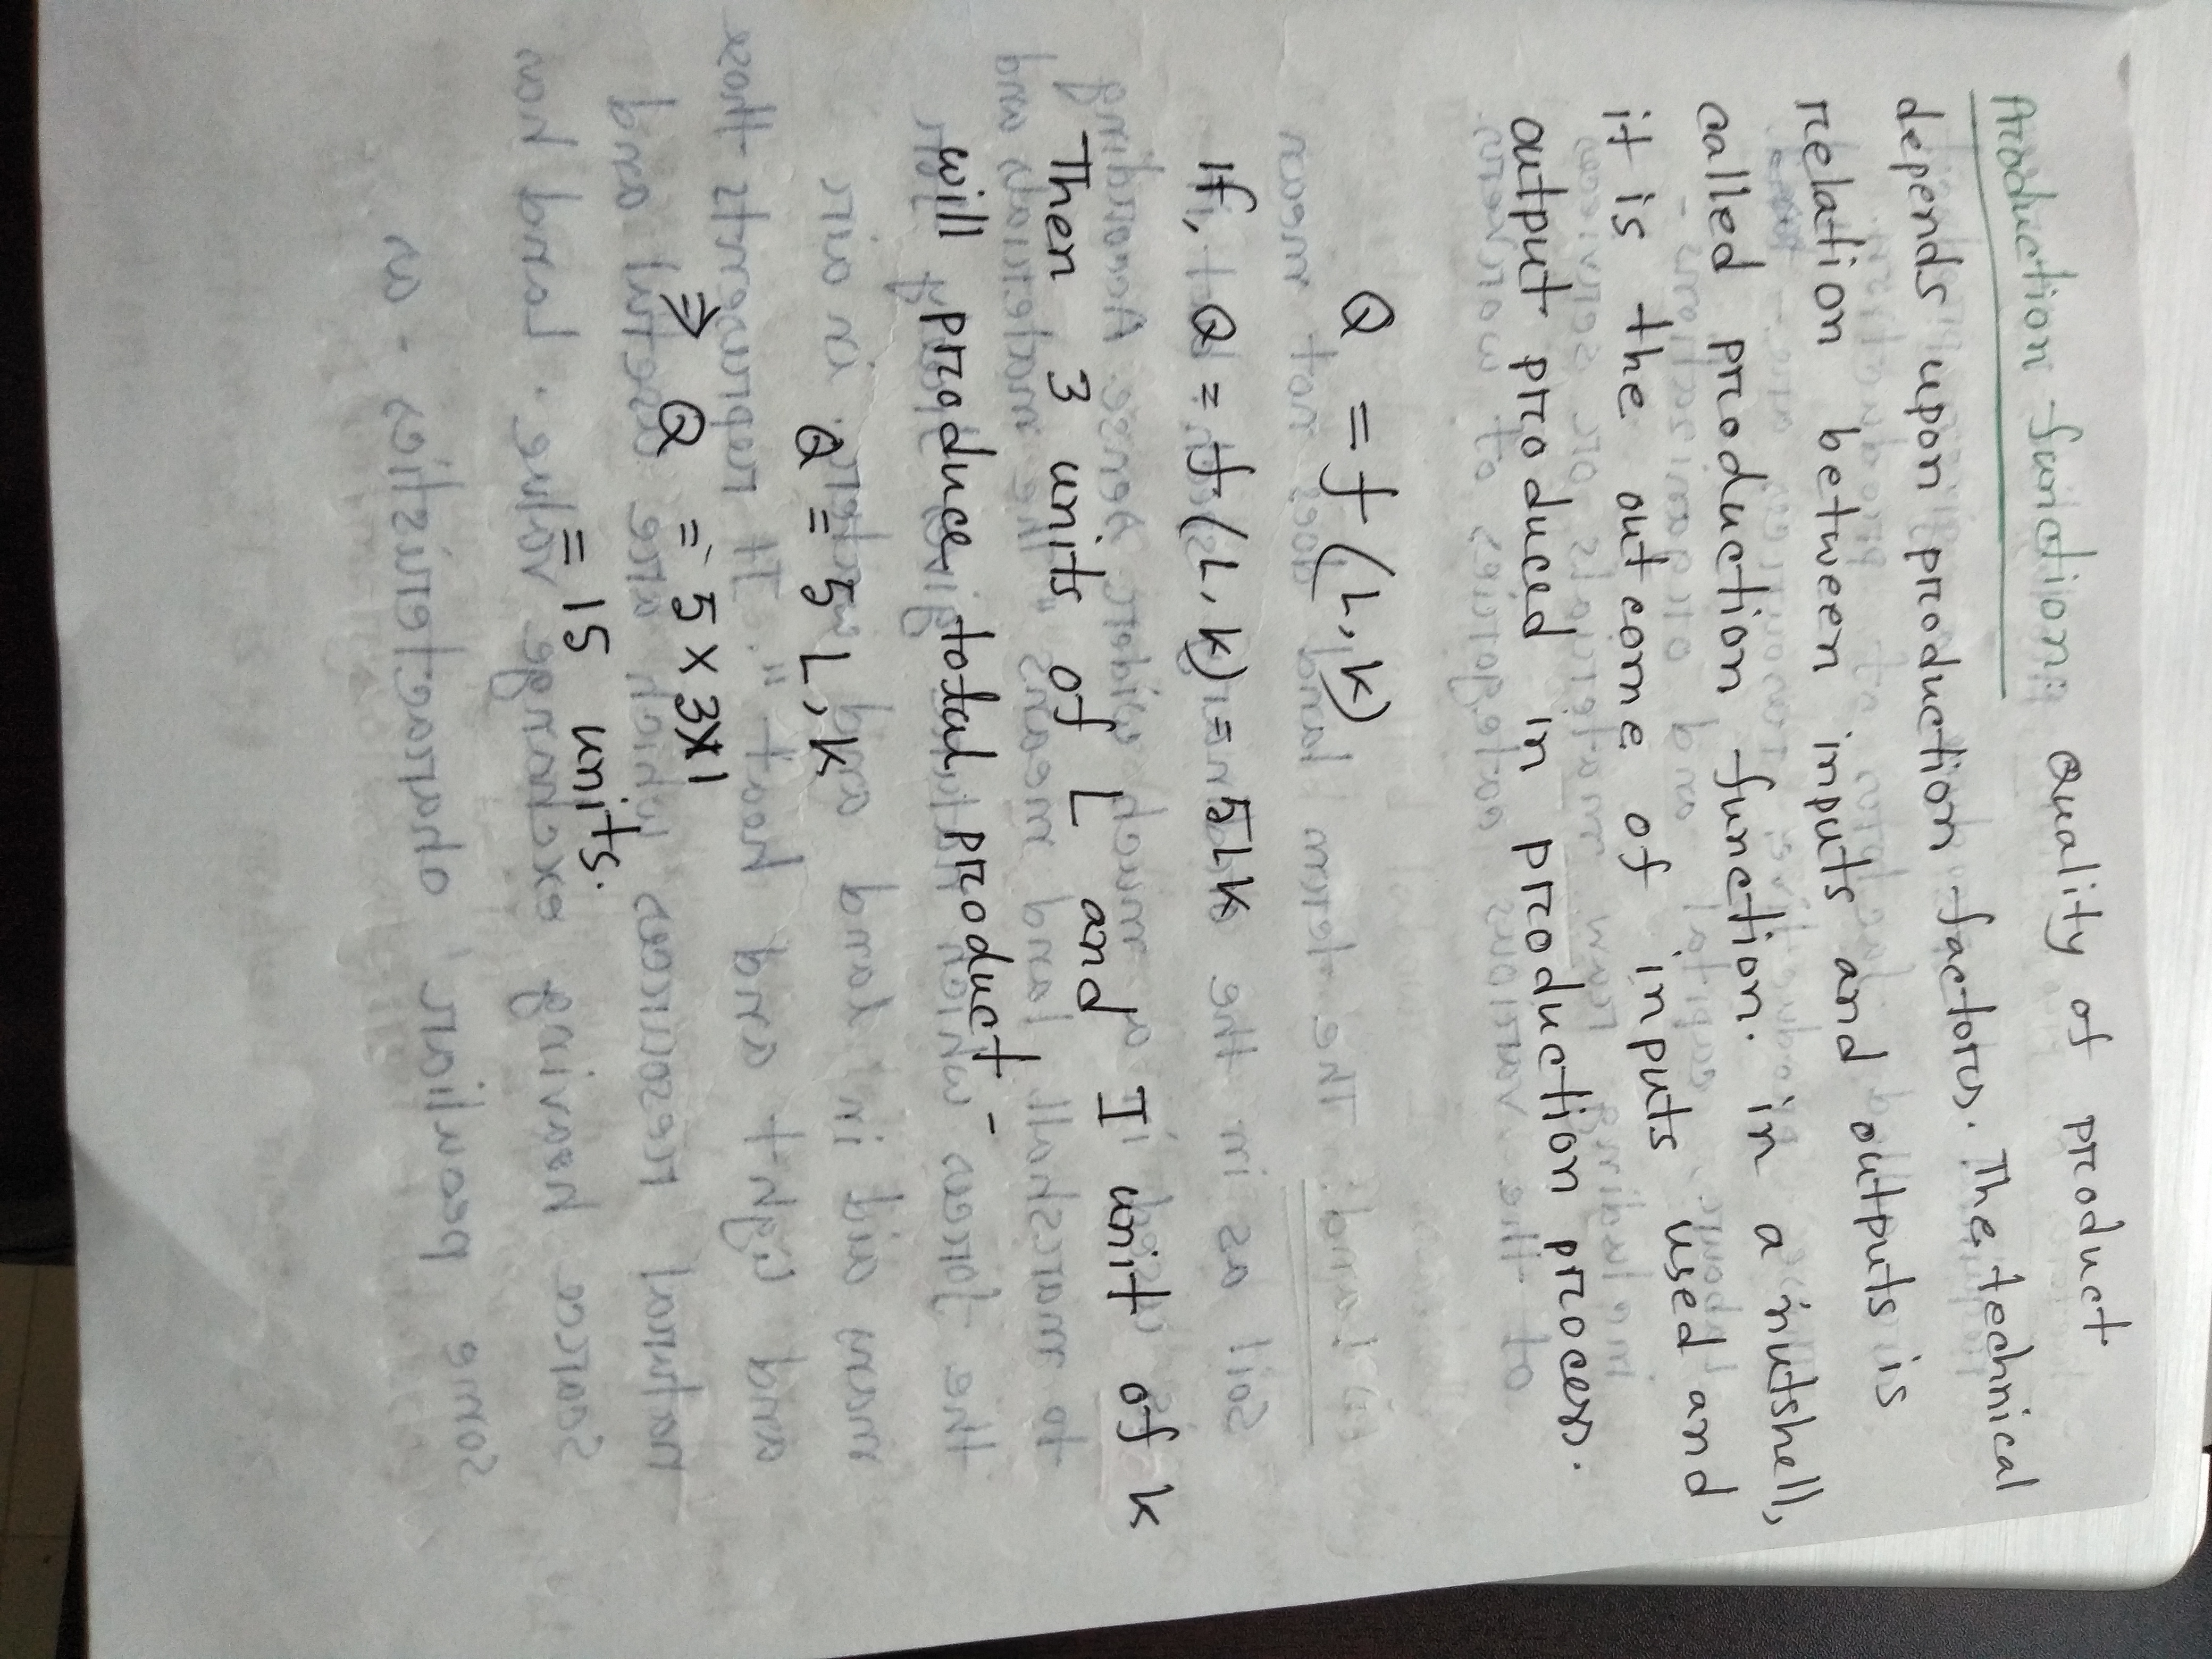 Production function: Quality of product
depends upon production factors. The technical
relation between inputs and outputs is
called production function. in a inutshell,
it is the outcome of inputs used and
output produced in production process.
Q = f (L, K)
If, Q = f (L, K) = 5LK
Then 3 units of L and 1 unit of K
will produce total product -
Q = 5 L, K
⇒ Q = 5 x 3x1
= 15 units.